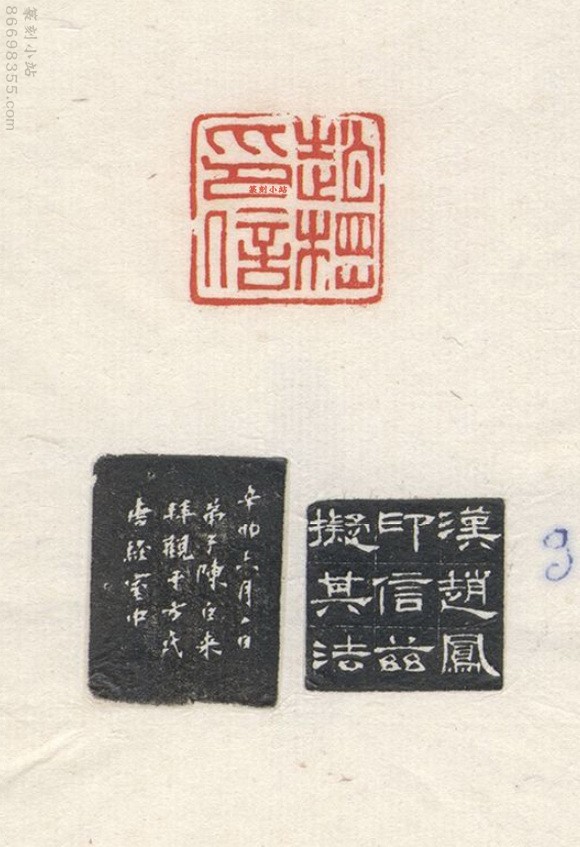 篆刻小站
86698355.com
趙
印信
篆刻小站
漢趙鳳
印信茲
擬其法
辛卯六月 日
弟子陳巨来
拜觀于方氏
經室中